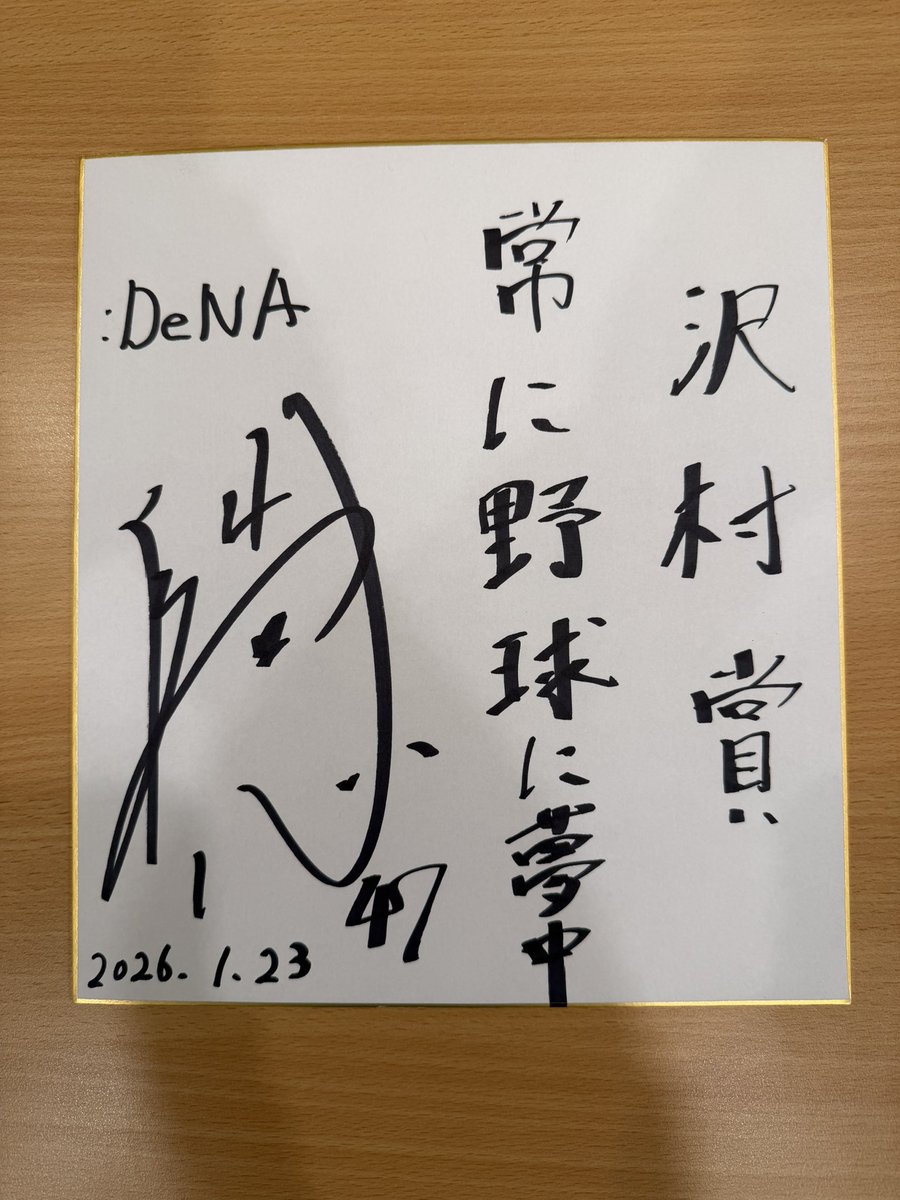 沢村賞
常に野球に夢中
:DeNA
47
2026.1.23